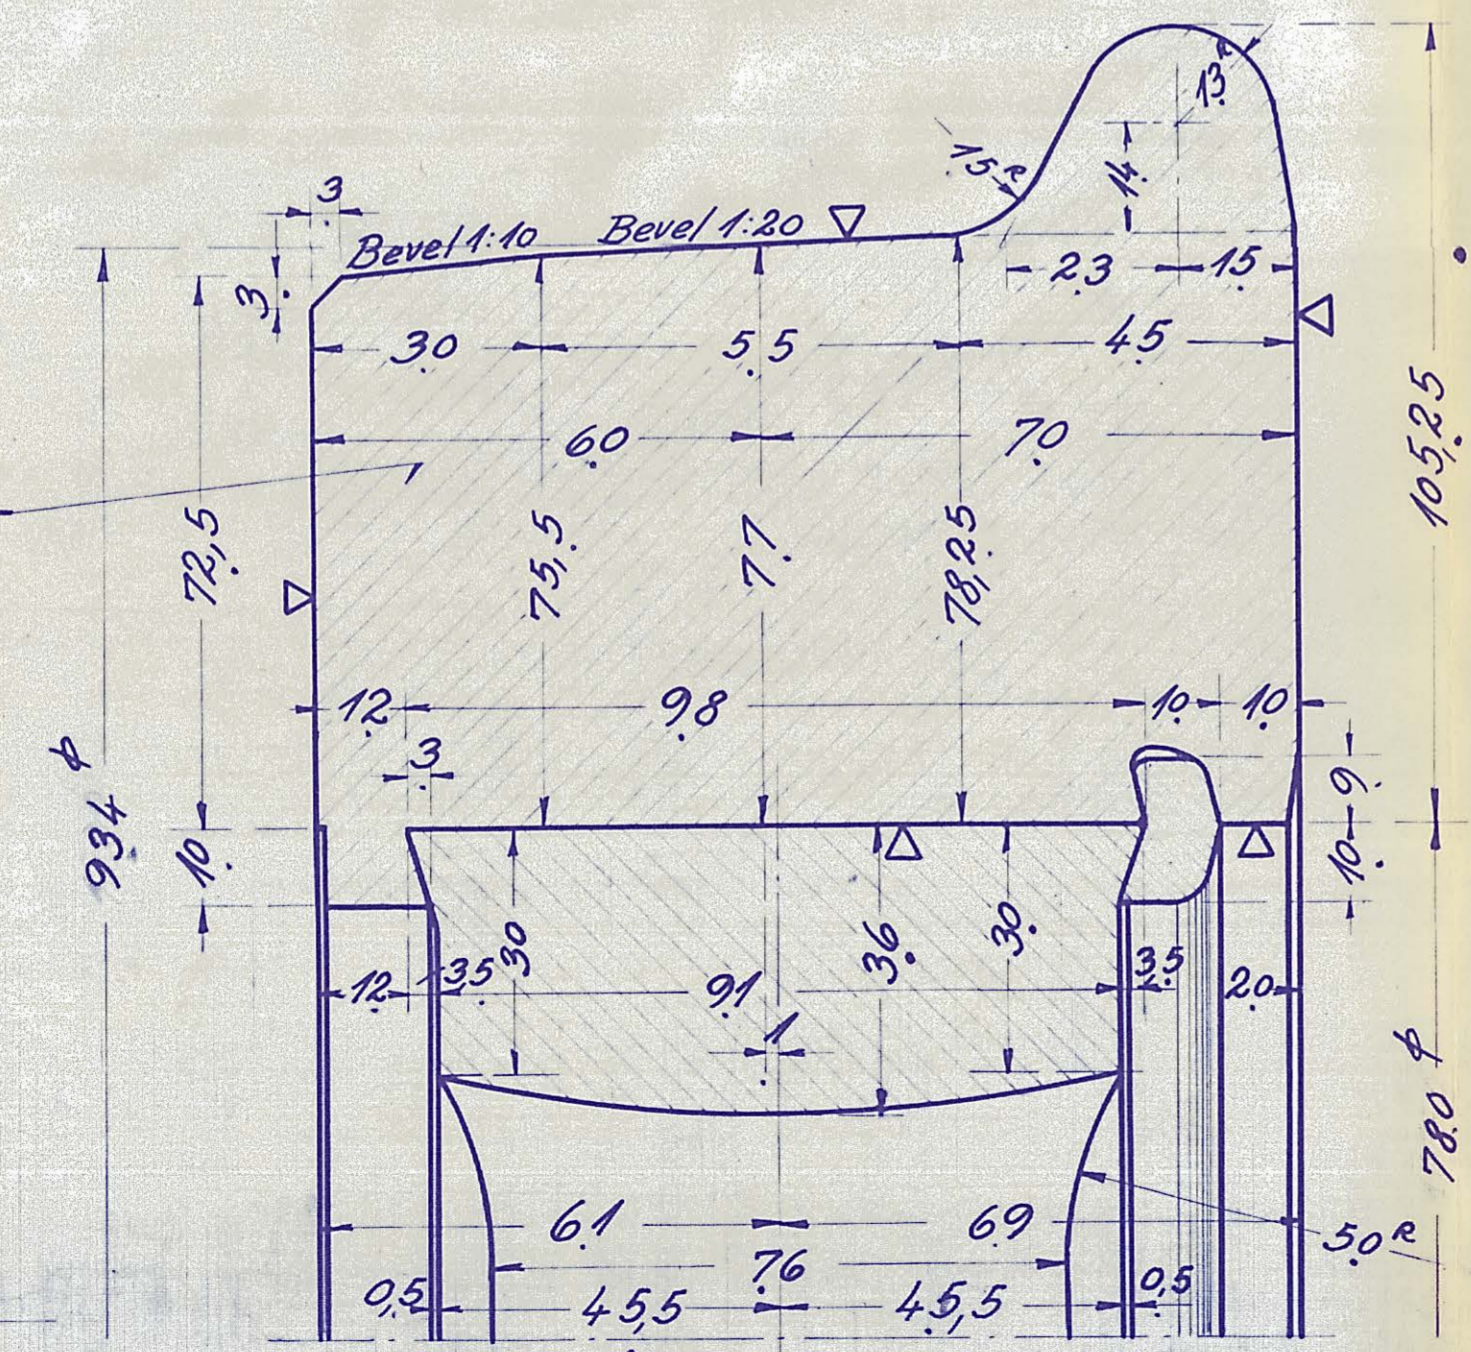 13 R
15 R
14
3
Bevel 1:10 Bevel 1:20
23 15
3
30 55 45
60 70
105,25
72,5 75,5 77 78,25
12 98 10 10
3
934 φ
9
10 10
30 36 30
12 3,5 91 3,5 20
1
780 φ
61 69
50 R
76
0,5 45,5 45,5 0,5